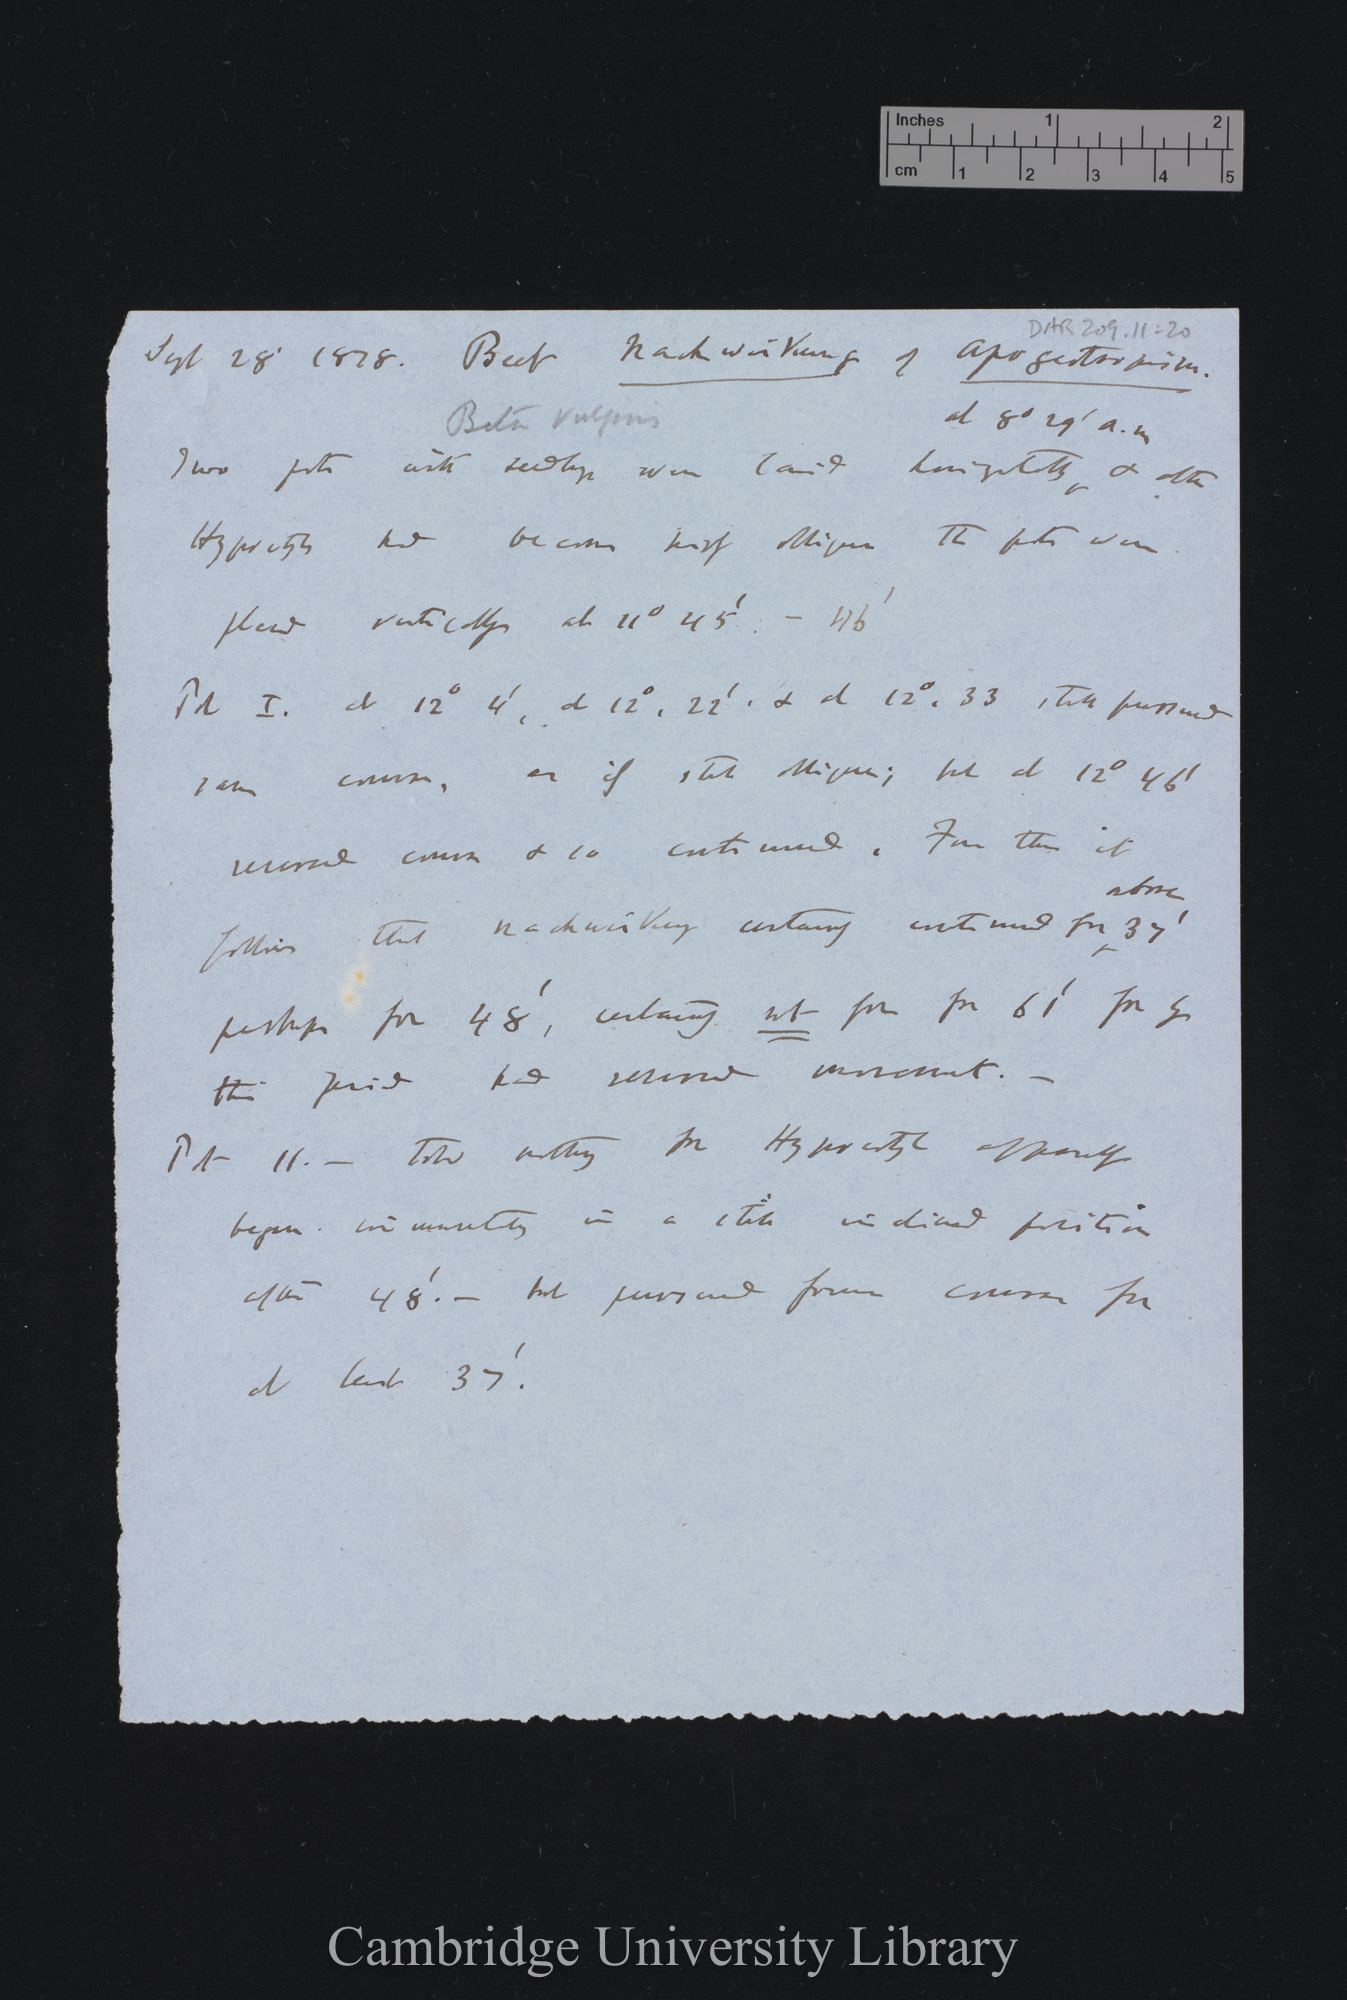 Inches 1 2
cm 1 2 3 4 5
DAR 209.11:20
Sept 28' 1878. Beet Nachwirkung of Apogeotropism.
Beta vulgaris
at 8° 29' a.m
Two pots with seedlings were laid horizontally, & after
Hypocotyls had become oblique the pots were
placed vertically at 11° 45'. – 46'
Pot I. at 12° 4', at 12°, 22'. & at 12°, 33 still pursued
same course, as if still oblique; but at 12° 46'
reversed course & so continued. From this it
above
follows that nachwirkung certainly continued for 37'
perhaps for 48', certainly not for 61' for by
this period had reversed movement. –
Pot II. – told nothing for Hypocotyl apparently
began circumnutating in a still inclined position
after 48'. – but pursued former course for
at least 37'.
Cambridge University Library